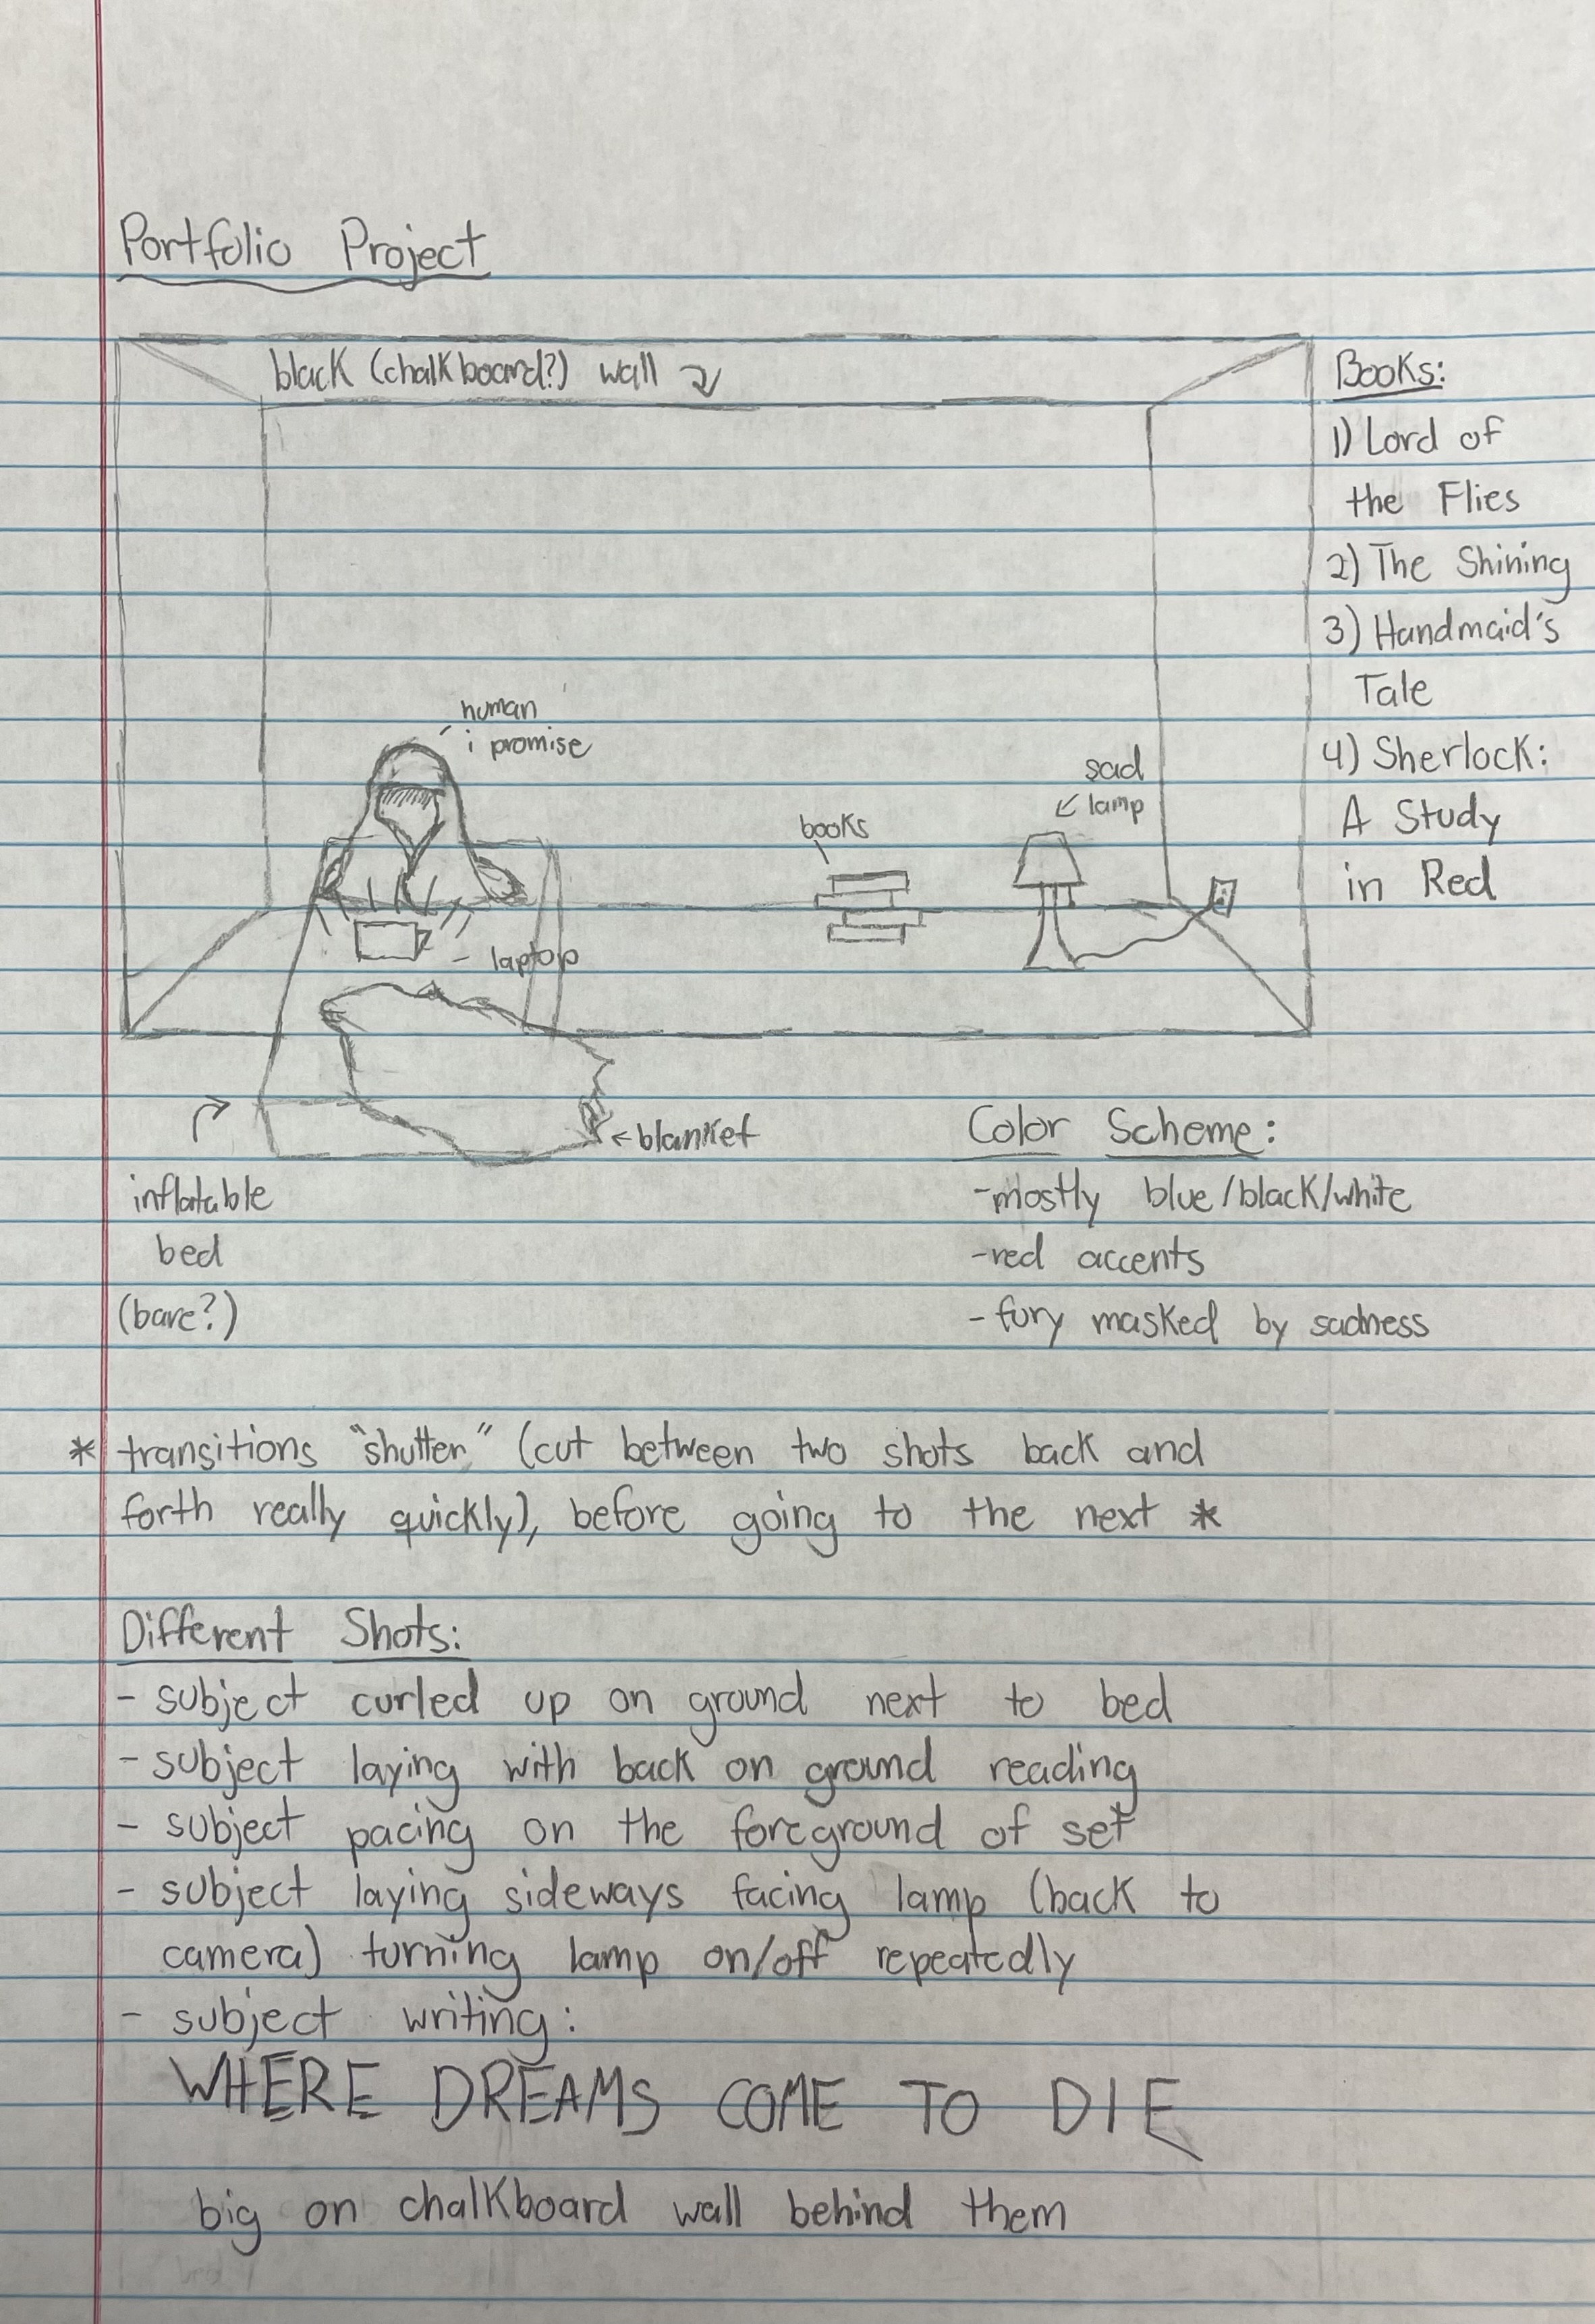 Portfolio Project
black (chalkboard?) wall
Books:
1) Lord of
the Flies
2) The Shining
3) Handmaid's
Tale
4) Sherlock:
A Study
in Red
human
i promise
sad
lamp
books
laptop
blanket
inflatable
bed
(bare?)
Color Scheme:
-mostly blue/black/white
-red accents
-fury masked by sadness
* transitions "shutter" (cut between two shots back and
forth really quickly), before going to the next *
Different Shots:
- subject curled up on ground next to bed
- subject laying with back on ground reading
- subject pacing on the foreground of set
- subject laying sideways facing lamp (back to
camera) turning lamp on/off repeatedly
- subject writing:
WHERE DREAMS COME TO DIE
big on chalkboard wall behind them